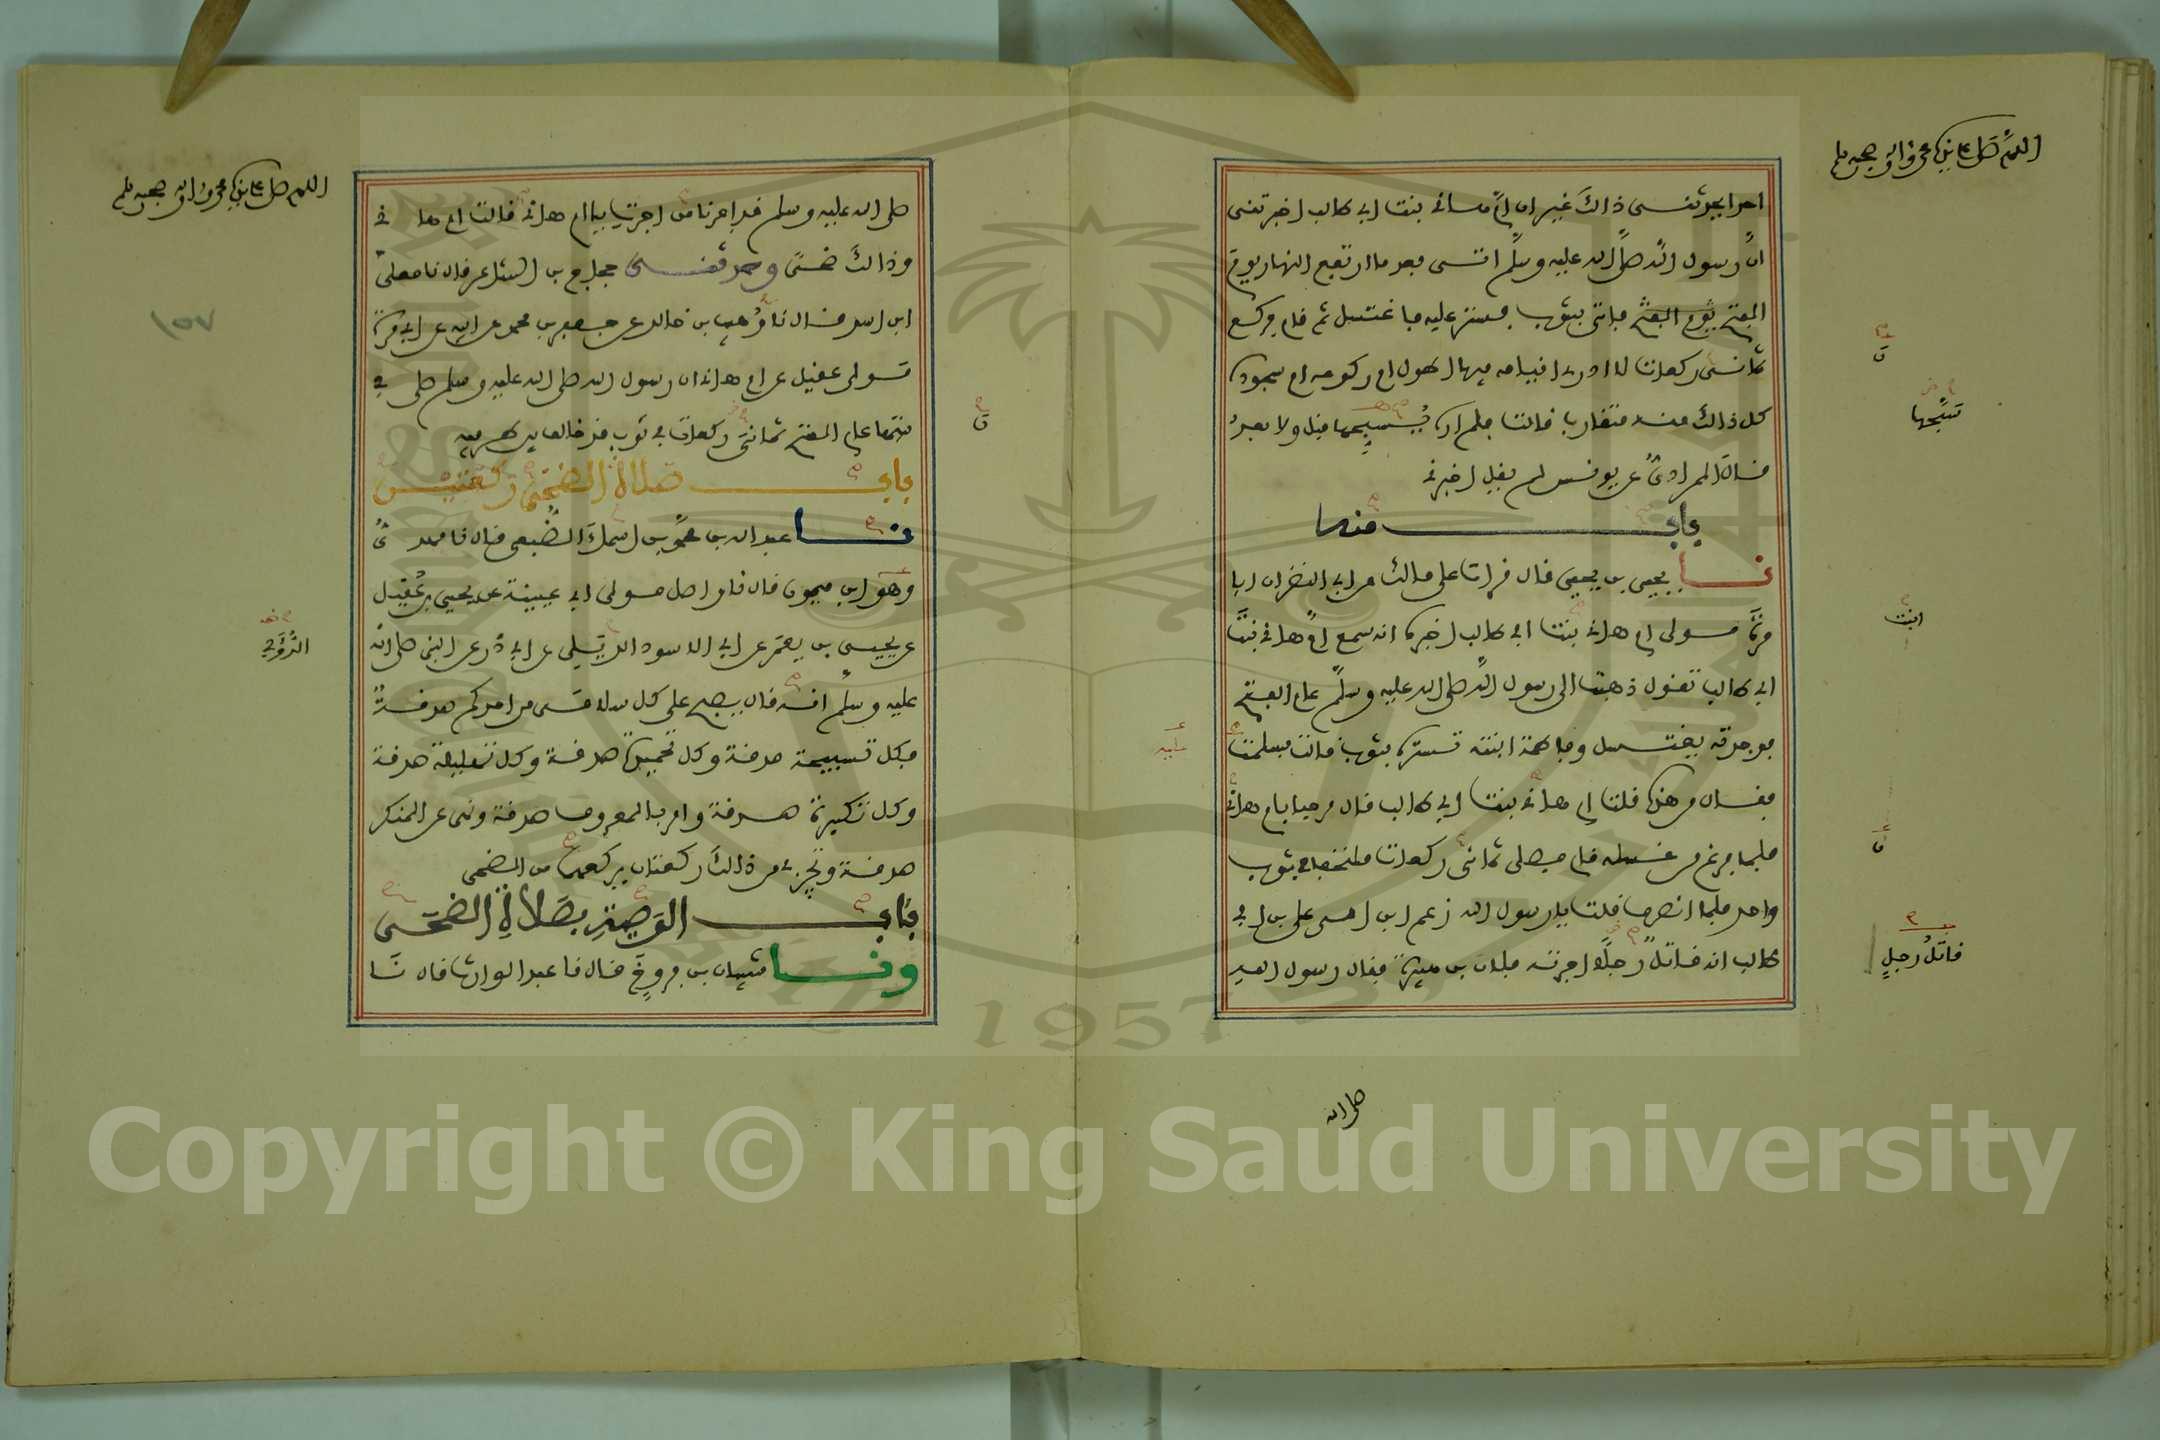 اللهم صل على سيدنا محمد وءاله وصحبه وسلم
احدا يحدثنى ذالك غير ان ام هانئ بنت ابى طالب اخبرتنى
ان رسول الله صلى الله عليه وسلم اتى بعد ما ارتفع النهار يوم
الفتح فاتى بثوب فستر عليه فاغتسل ثم قام فركع
ثمانى ركعات لا ادرى اقيامه فيها اطول ام ركوعه ام سجوده
كل ذالك منه متقارب قالت فلم اره يسبحها قبل ولا بعد
قال المرادى عن يونس لم يقل اخبرنى
باب منه
نا يحيى بن يحيى قال قرات على مالك عن ابى النضر ان ابا
مرة مولى ام هانئ بنت ابى طالب اخبره انه سمع ام هانئ بنت
ابى طالب تقول ذهبت الى رسول الله صلى الله عليه وسلم عام الفتح
فوجدته يغتسل وفاطمة ابنته تستره بثوب قالت فسلمت
فقال من هذه قلت ام هانئ بنت ابى طالب قال مرحبا بام هانئ
فلما فرغ من غسله قام فصلى ثمانى ركعات ملتحفا فى ثوب
واحد فلما انصرف قلت يا رسول الله زعم ابن امى على بن ابى
طالب انه قاتل رجلا اجرته فلان بن هبيرة فقال رسول الله
ق
تسبحها
ابنت
ق
قاتل رجل
صلى الله
اللهم صل على سيدنا محمد وءاله وصحبه وسلم
١٥٧
صلى الله عليه وسلم قد اجرنا من اجرت يا ام هانئ قالت ام هانئ
وذالك ضحى وحدثنى حجاج بن الشاعر قال نا معلى
ابن اسد قال نا وهيب بن خالد عن جعفر بن محمد عن ابيه عن ابى مرة
مولى عقيل عن ام هانئ ان رسول الله صلى الله عليه وسلم صلى فى
بيتها عام الفتح ثمانى ركعات فى ثوب قد خالف بين طرفيه
باب صلاة الضحى ركعتين
نا عبد الله بن محمد بن اسماء الضبعى قال نا مهدى
وهو ابن ميمون قال نا واصل مولى ابى عيينة عن يحيى بن عقيل
عن يحيى بن يعمر عن ابى الاسود الديلى عن ابى ذر عن النبى صلى الله
عليه وسلم انه قال يصبح على كل سلامى من احدكم صدقة
فكل تسبيحة صدقة وكل تحميدة صدقة وكل تهليلة صدقة
وكل تكبيرة صدقة وامر بالمعروف صدقة ونهى عن المنكر
صدقة وتجزئ من ذالك ركعتان يركعهما من الضحى
باب الوصية بصلاة الضحى
ونا شيبان بن فروخ قال نا عبد الوارث قال نا
ق
الدؤلى
1957
Copyright © King Saud University